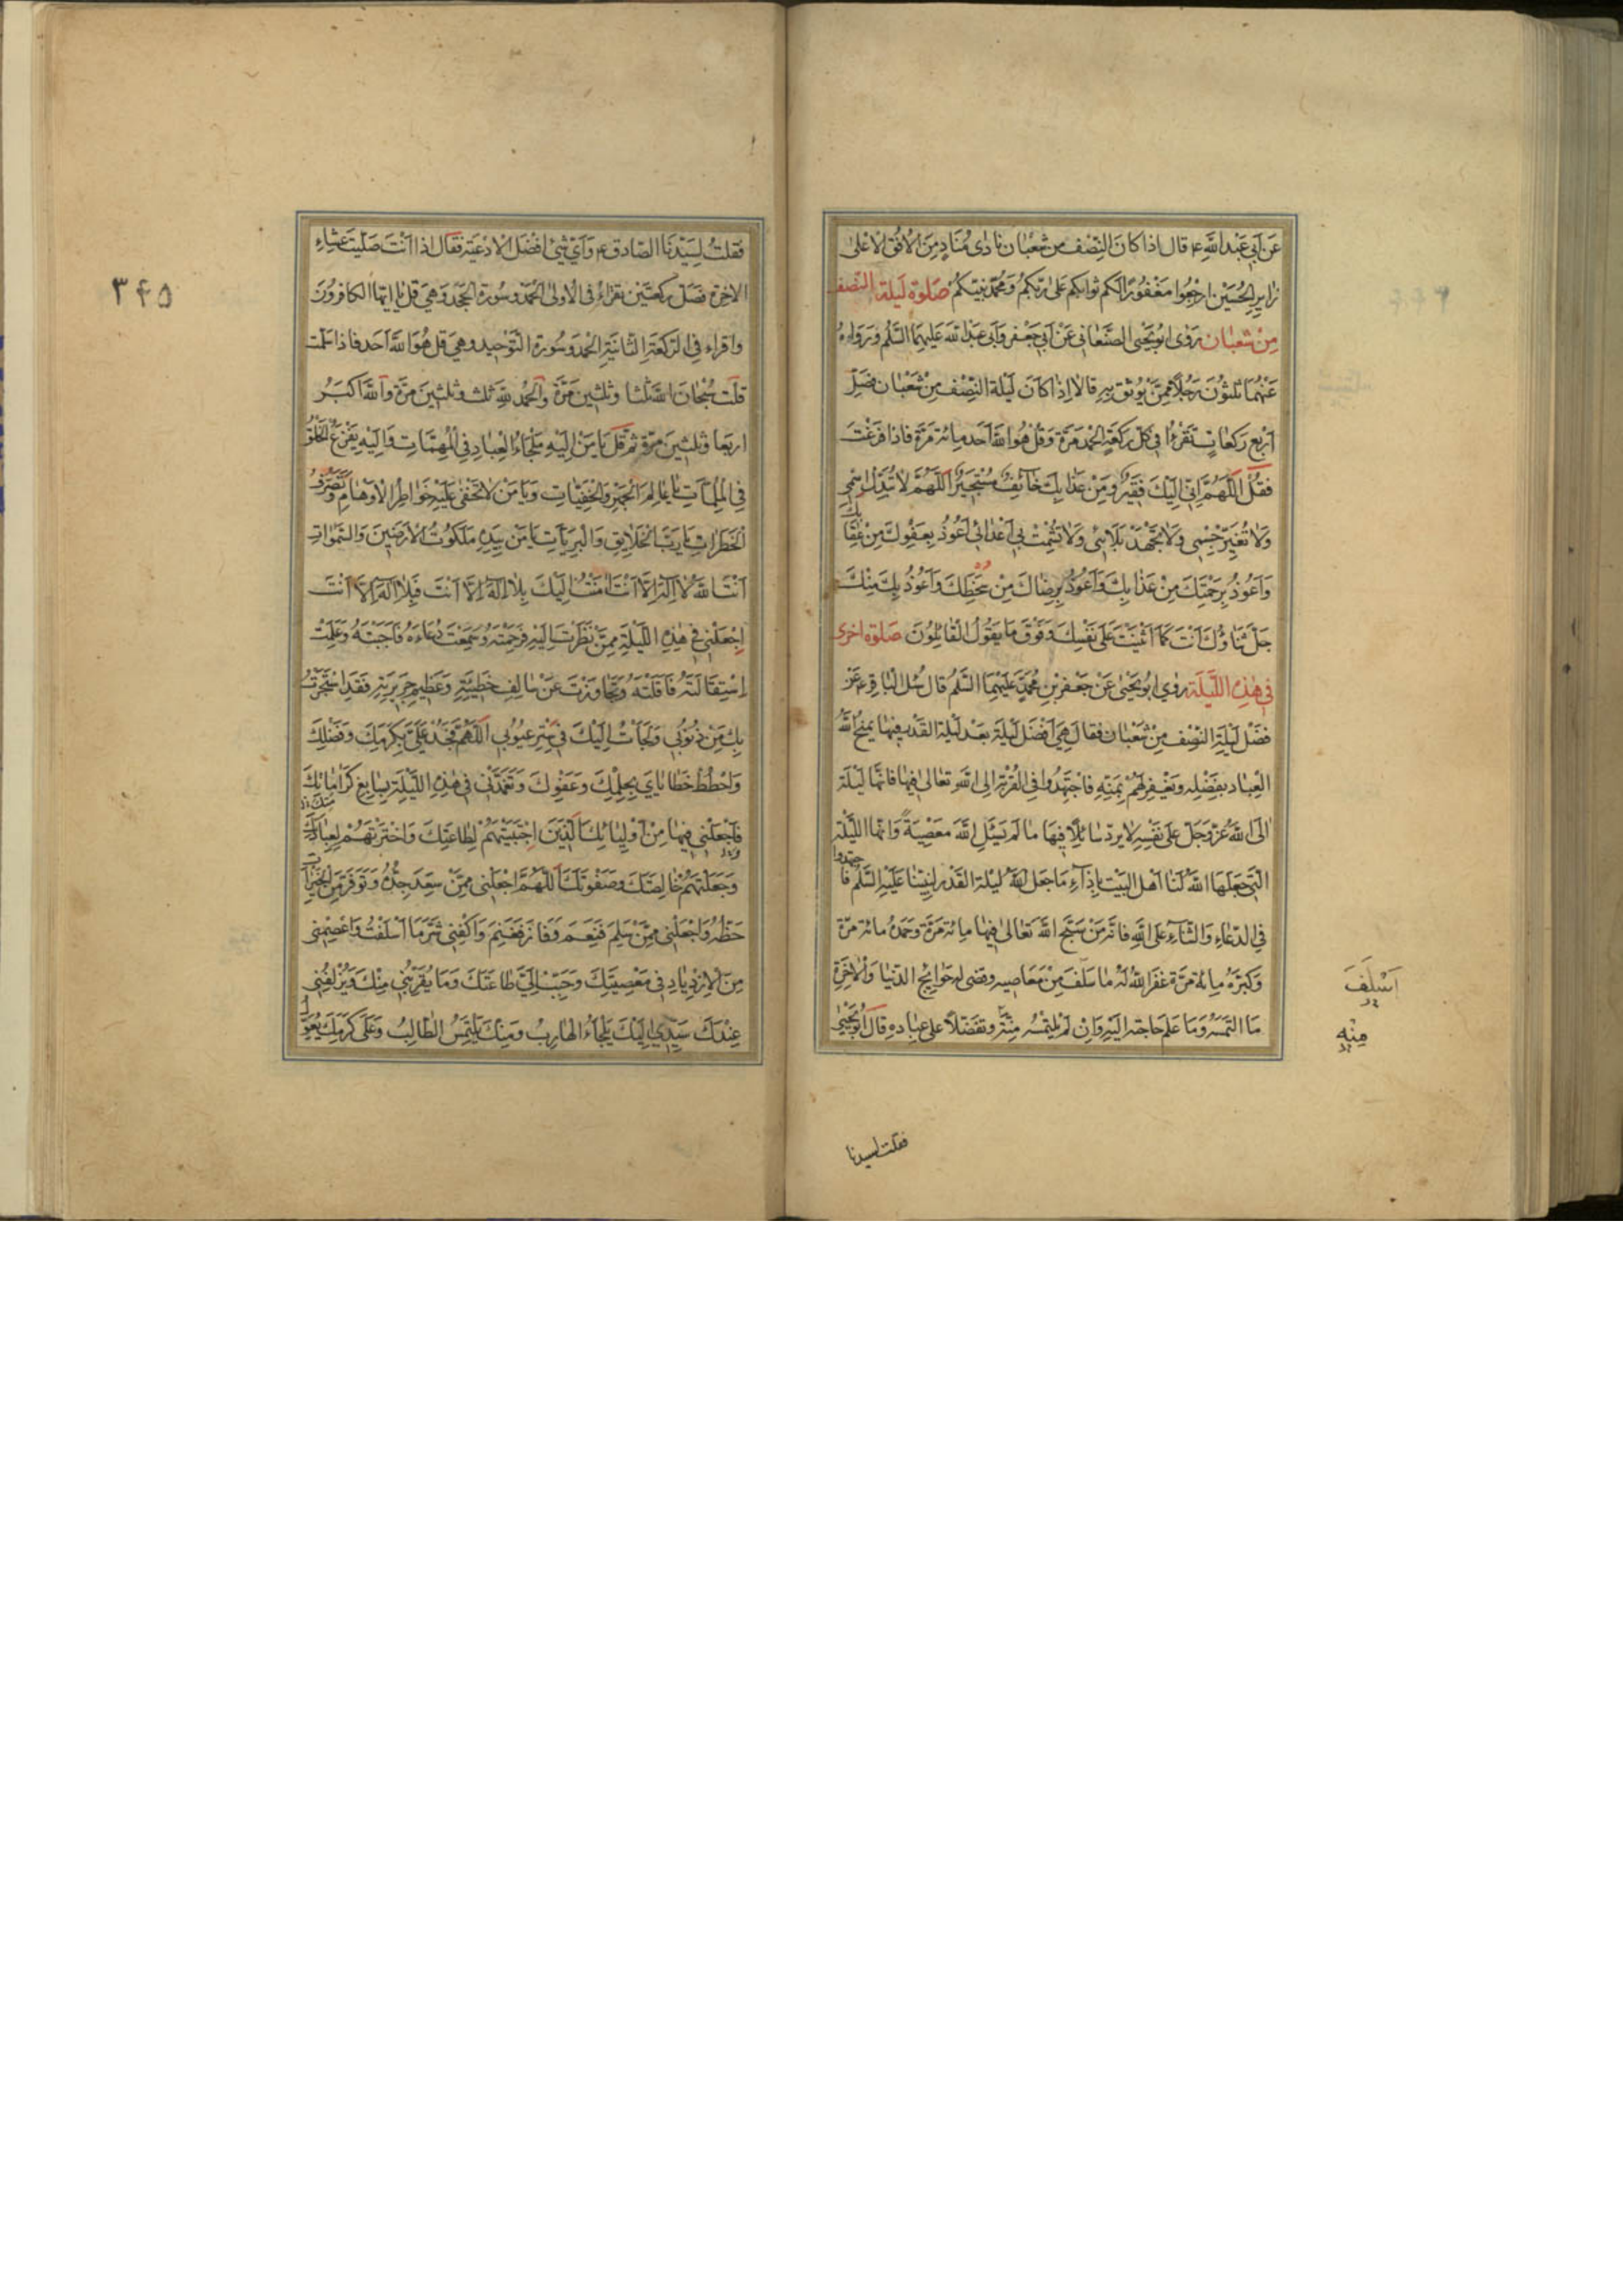 عَنْ اَبِي عَبْدِ اللَّهِ ع قال اذا كانَ النِّصْفُ من شعْبان نادٰى مُنَادٍ مِنَ الْاُفُقِ الْاَعْلىٰ
زايِرِي الْحُسَيْنِ ارْجِعُوا مَغْفُورًا لَكم ثوابكم عَلىٰ رَبِّكُمْ وَ مُحَمَّدٍ نَبِيِّكُمْ صَلٰوة لَيلة النّصف
مِنْ شَعْبٰان رَوٰى ابُو يَحْيَى الصَّنْعٰاني عَنْ اَبِي جَعْفَرٍ وَ اَبي عَبْدِ اللَّه عَلَيْهِمَا السَّلٰمُ وَ رَوٰاهُ
عَنْهُمٰا ثَلٰثُونَ رَجُلاً مِمَّنْ يُوثَقُ بِهِ قالا اِذٰا كٰانَ لَيْلَة النِّصْفِ مِنْ شَعْبٰان فَصَلِّ
اَرْبَعَ رَكَعٰاتٍ تَقْرَءُ في كُلِّ رَكْعَةٍ الْحَمْد مَرَّة وَ قُلْ هُوَ اللَّهُ اَحَد مِائة مَرَّة فاذا فَرَغْتَ
فَقُلْ اَللّٰهُمَّ اِنّي اِلَيْكَ فَقِيرٌ وَ مِنْ عَذٰابِكَ خٰائِفٌ مُسْتَجِيرٌ اَللّٰهُمَّ لاٰ تُبَدِّلْ اِسْمي
وَلاٰ تُغَيِّرْ جِسْمي وَلاٰ تَجْهَدْ بَلاٰئي وَلاٰ تُشْمِتْ بي اَعْدٰائي اَعُوذُ بِعَفْوِكَ مِنْ عِقٰابِكَ
وَ اَعُوذُ بِرَحْمَتِكَ مِنْ عَذٰابِكَ وَ اَعُوذُ بِرِضٰاكَ مِنْ سَخَطِكَ وَ اَعُوذُ بِكَ مِنْكَ
جَلَّ ثَنٰاؤُكَ اَنْتَ كَمٰا اَثْنَيْتَ عَلىٰ نَفْسِكَ وَ فَوْقَ مٰا يَقُولُ الْقٰائِلُونَ صَلٰوة اخرى
في هٰذِهِ اللَّيْلَة رَوٰى ابُو يَحْيىٰ عَنْ جَعْفَرِ بْنِ مُحَمَّدٍ عَلَيْهِمَا السَّلٰمُ قال سُئل الباقر ع عَنْ
فَضْلِ لَيْلَةِ النِّصْفِ مِنْ شَعْبٰان فَقٰالَ هِيَ اَفْضَلُ لَيْلَةٍ بَعْدَ لَيْلَةِ الْقَدْرِ فيهٰا يَمْنَحُ اللَّهُ
الْعِبٰادَ بِفَضْلِهِ وَ يَغْفِرُ لَهُمْ بِمَنِّهِ فَاجْتَهِدُوا فِي الْقُرْبَةِ اِلى اللَّهِ تَعٰالىٰ فيهٰا فَانَّهٰا لَيْلَة
اٰلَى اللَّهُ عَزَّ وَ جَلَّ عَلىٰ نَفْسِهِ لاٰ يَرُدّ سٰائلاً فِيهَا مٰا لَمْ يَسْئَلِ اللَّهَ مَعْصِيَةً وَ انَّهَا اللَّيْلَة
الَّتِي جَعَلَهَا اللَّهُ لَنَا اَهْلَ الْبَيْتِ بِاِزٰاءِ مٰا جَعَلَ اللَّهُ لَيْلَة الْقَدْر لِنَبِيِّنٰا عَلَيْهِ السَّلٰمُ فَاجتهدوا
فِي الدُّعٰاءِ وَ الثَّنٰاءِ عَلَى اللَّهِ فَانَّه مَنْ سَبَّحَ اللَّهَ تَعٰالىٰ فيهٰا مِائة مَرَّة وَ حَمَدَهُ مائة مرّة
وَ كَبَّرَهُ مِائة مَرَّة غَفَرَ اللَّهُ لَهُ مٰا سَلَفَ مِنْ مَعٰاصِيهِ وَ قضى لَه حَوٰائِج الدّنْيٰا وَ الْاٰخِرَةِ
مَا الْتَمَسَهُ وَ مٰا عَلِمَ حٰاجَته اِلَيْهِ وَ اِنْ لَمْ يَلْتَمِسْهُ مِنْهُ مَنّاً وَ تَفَضُّلاً عَلىٰ عِبٰادِهِ قٰالَ ابُو يَحْيىٰ
اَسْلَفَ
مِنْهِ
فقلت لسيدنا
٣۴۵
فَقُلتُ لِسَيِّدِنَا الصّادق ع وَ اَيُّ شَيْءٍ اَفْضَلُ الْاَدْعِيَة فَقٰالَ اِذا اَنْتَ صَلَّيْتَ عِشٰاءَ
الاٰخِرَة فَصَلِّ رَكْعَتَيْنِ تقراءُ في الاُولىٰ الْحَمْد وَ سُورَة الْجَحْد وَ هِيَ قل يٰا ايّها الكافِرُونَ
وَ اقراء فِي الرَّكعَةِ الثّٰانِيَةِ الْحَمْد وَ سُورَة التَّوْحِيد و هِيَ قل هُوَ اللَّهُ اَحَد فاذا سَلَّمْت
قلت سُبْحٰانَ اللَّهِ ثَلٰثا و ثلٰثين مَرَّة وَ الْحَمْد لِلَّهِ ثلٰث و ثلٰثين مَرَّة وَ اللَّه اَكْبَرُ
اربَعا وَ ثلٰثين مَرّة ثُمّ قُلْ يٰا مَنْ اِلَيْهِ مَلْجَاءُ الْعِبٰادِ فِي الْمُهِمّٰاتِ وَ اِلَيْهِ يَفْزَعُ الْخَلْقُ
فِي الْمُلِمّٰاتِ يٰا عٰالِمَ الْجَهْرِ وَ الْخَفِيّٰاتِ وَ يٰا مَنْ لاٰ تَخْفىٰ عَلَيْهِ خَوٰاطِرُ الْاَوْهٰامِ وَ تَصَرُّفُ
الْخَطَرٰاتِ يٰا رَبَّ الْخَلاٰيِقِ وَ الْبَرِيّٰاتِ يٰا مَنْ بِيَدِهِ مَلَكُوتُ الْاَرَضِينَ وَ السَّمٰوٰاتِ
اَنْتَ اللَّهُ لاٰ اِلٰهَ اِلاّٰ اَنْتَ اَمُتُّ اِلَيْكَ بِلاٰ اِلٰهَ اِلاّٰ اَنْتَ فَبِلاٰ اِلٰهَ اِلاّٰ اَنْتَ
اِجْعَلْني في هٰذِهِ اللَّيْلَةِ مِمَّنْ نَظَرْتَ اِلَيْهِ فَرَحِمْتَهُ وَ سَمِعْتَ دُعٰاءَهُ فَاَجَبْتَهُ وَ عَلِمْتَ
اِسْتِقٰالَتَهُ فَاَقَلْتَهُ وَ تَجٰاوَزْتَ عَنْ سٰالِفِ خَطِيئَتِهِ وَ عَظِيمِ جَرِيرَتِهِ فَقَدِ اسْتَجَرْتُ
بِكَ مِنْ ذُنُوبي وَ لَجَاْتُ اِلَيْكَ في سَتْرِ عُيُوبي اَللّٰهُمَّ فَجُدْ عَلَيَّ بِكَرَمِكَ وَ فَضْلِكَ
وَ احْطُطْ خَطٰايٰايَ بِحِلْمِكَ وَ عَفْوِكَ وَ تَغَمَّدْني في هٰذِهِ اللَّيْلَةِ بِسٰابِغِ كَرٰامٰاتِكَ
فَاجْعَلْني فيهٰا مِنْ اَوْلِيٰائِكَ الَّذينَ اجْتَبَيْتَهُمْ لِطٰاعَتِكَ وَ اخْتَرْتَهُمْ لِعِبٰادَتِكَ
وَ جَعَلْتَهُمْ خٰالِصَتَكَ وَ صَفْوَتَكَ اَللّٰهُمَّ اجْعَلْني مِمَّنْ سَعِدَ جَدُّهُ وَ تَوَفَّرَ مِنَ الْخَيْرٰاتِ
حَظُّهُ وَ اجْعَلْني مِمَّنْ سَلِمَ فَنَعِمَ وَ فٰازَ فَغَنِمَ وَ اكْفِني شَرَّ مٰا اَسْلَفْتُ وَ اعْصِمْني
مِنَ الْاِزْدِيٰادِ في مَعْصِيَتِكَ وَ حَبِّبْ اِلَيَّ طٰاعَتَكَ وَ مٰا يُقَرِّبُني مِنْكَ وَ يُزْلِفُني
عِنْدَكَ سَيِّدي اِلَيْكَ يَلْجَاءُ الْهٰارِبُ وَ مِنْكَ يَلْتَمِسُ الطّٰالِبُ وَ عَلىٰ كَرَمِكَ يُعَوِّلُ